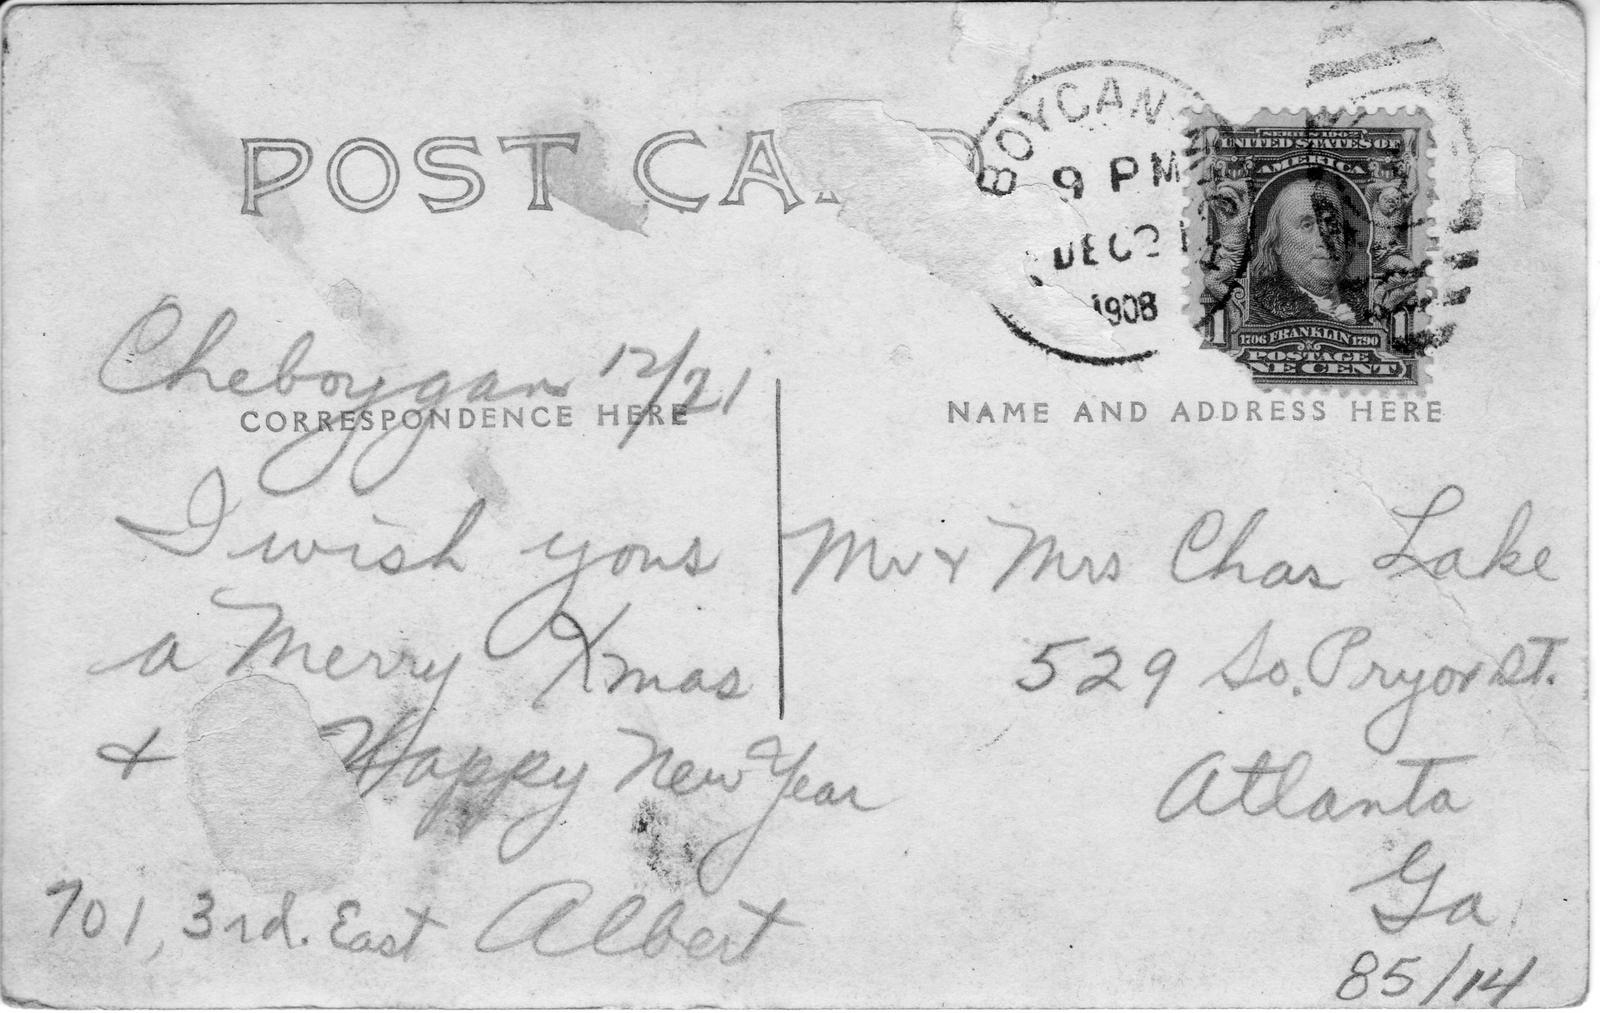 POST CA
BOYGAN
9 PM
DEC 21
1908
SERIES 1902
UNITED STATES OF
AMERICA
1 1
1706 FRANKLIN 1790
POSTAGE
NE CENT
Cheboygan 12/21
CORRESPONDENCE HERE
I wish yous
a Merry Xmas
& Happy New Year
701, 3rd. East Albert
NAME AND ADDRESS HERE
Mr & Mrs Chas Lake
529 So. Pryor St.
Atlanta
Ga
85/14